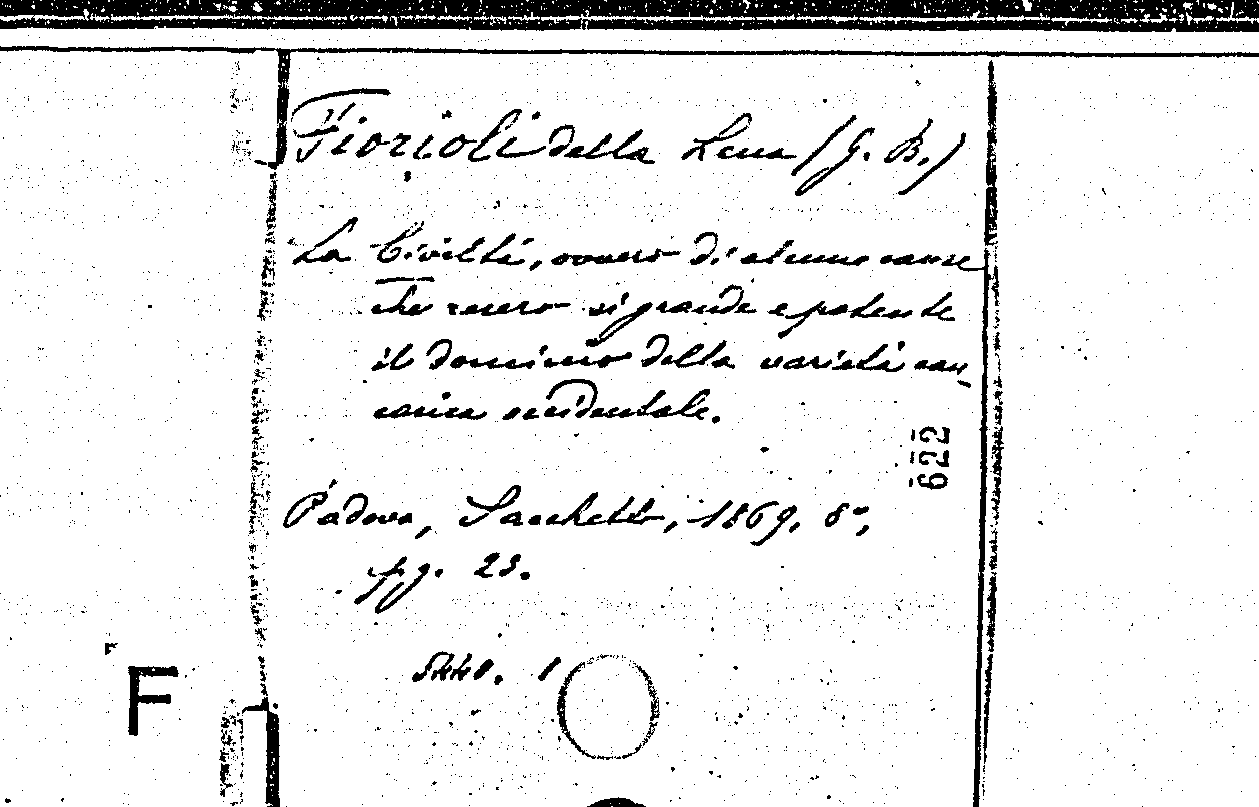 Fiorioli della Lena (G. B.)
La Civiltà, ovvero di alcune cause
che resero sì grande e potente
il dominio della varietà cau-
casica occidentale.
622
Padova, Sacchetto, 1869, 8°,
pg. 23.
5440. 1
F